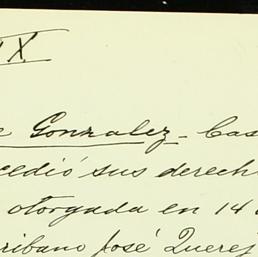 IX
e Gonzalez - Cas
cedió sus derech
otorgada en 14
ribano José Querej